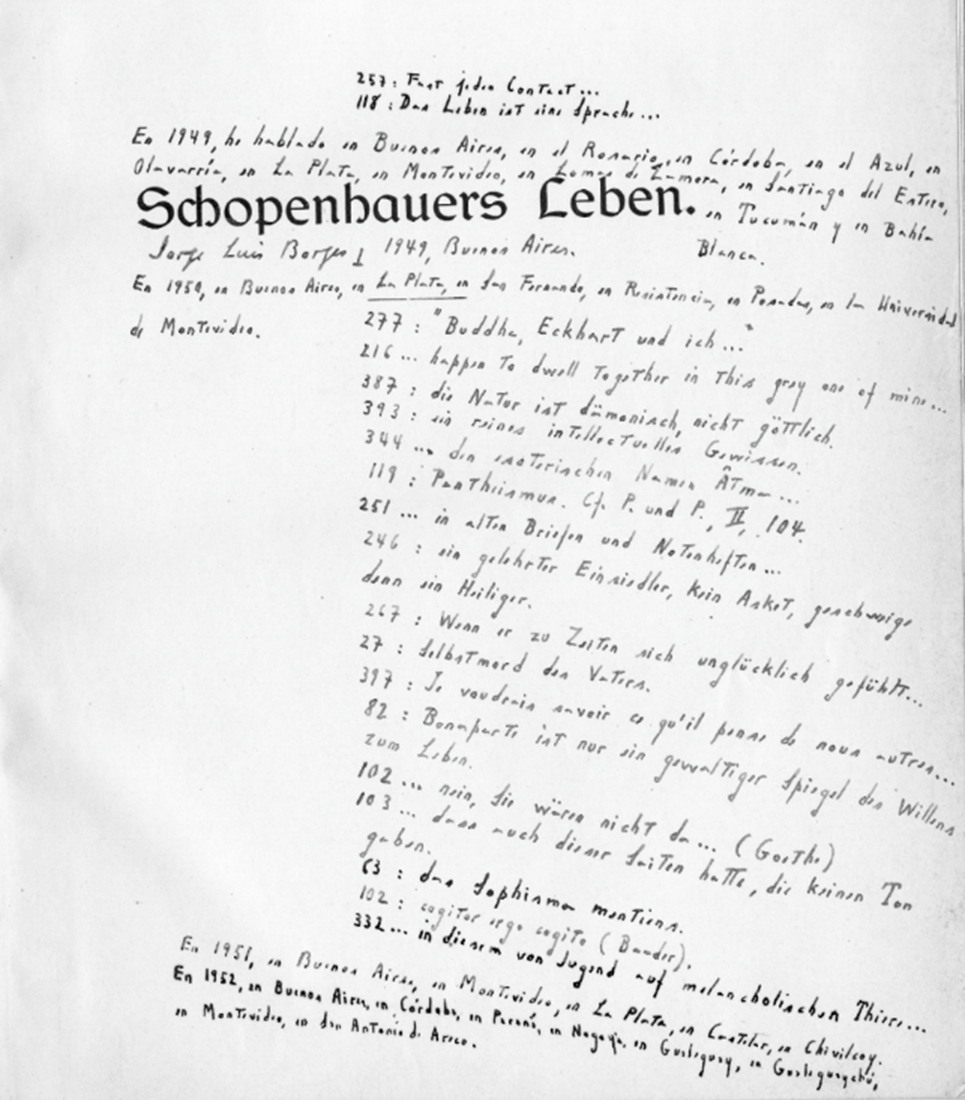 257: Fast jeden Contact...
118: Das Leben ist eine Sprache...
En 1949, he hablado en Buenos Aires, en el Rosario, en Córdoba, en el Azul, en
Olavarría, en La Plata, en Montevideo, en Lomas de Zamora, en Santiago del Estero,
Schopenhauers Leben. en Tucumán y en Bahía
Blanca.
Jorge Luis Borges 1949, Buenos Aires.
En 1950, en Buenos Aires, en La Plata, en San Fernando, en Resistencia, en Posadas, en la Universidad
de Montevideo.
277: "Buddha, Eckhart und ich..."
216... happen to dwell together in this grey one of mine...
387: die Natur ist dämonisch, nicht göttlich.
393: ein reines intellectuelles Gewissen.
344... den esoterischen Namen Âtma...
119: Pantheismus. Cf. P. und P., II, 104.
251... in alten Briefen und Notenheften...
246: ein gelehrter Einsiedler, kein Asket, geschweige
denn ein Heiliger.
267: Wenn er zu Zeiten sich unglücklich gefühlt...
27: Selbstmord des Vaters.
397: Je voudrais savoir ce qu'il pense de nous autres...
82: Bonaparte ist nur ein gewaltiger Spiegel des Willens
zum Leben.
102... nein, Sie wären nicht da... (Goethe)
103... dass auch dieser Saiten hatte, die keinen Ton
gaben.
63: das Sophisma mentiens.
102: cogitor ergo cogito (Baader).
332... in diesem von Jugend auf melancholischen Thiere...
En 1951, en Buenos Aires, en Montevideo, en La Plata, en Castelar, en Chivilcoy.
En 1952, en Buenos Aires, en Córdoba, en Paraná, en Nogoyá, en Gualeguay, en Gualeguaychú,
en Montevideo, en San Antonio de Areco.